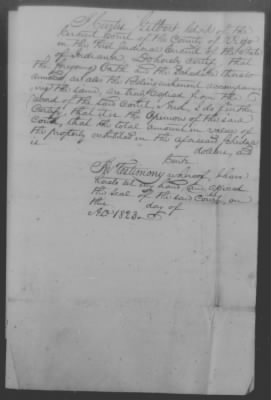 I Curtis Gilbert Clerk of the
Circuit Court of the County of Vigo
in the First Judicial Circuit of the State
of Indiana Do hereby certify that
the foregoing Oath and the Schedule thereto
annexed as also the Relinquishment accompany
ing the same, are truly copied from the
record of the said Court, And I do further
Certify, that it is the Opinion of the said
Court, that the total amount in value of
the property exhibited in the aforesaid Schedule
is dollars, and
Cents
In Testimony whereof I have
hereto set my hand and affixed
the seal of the said Court, on
this day of
AD 1823